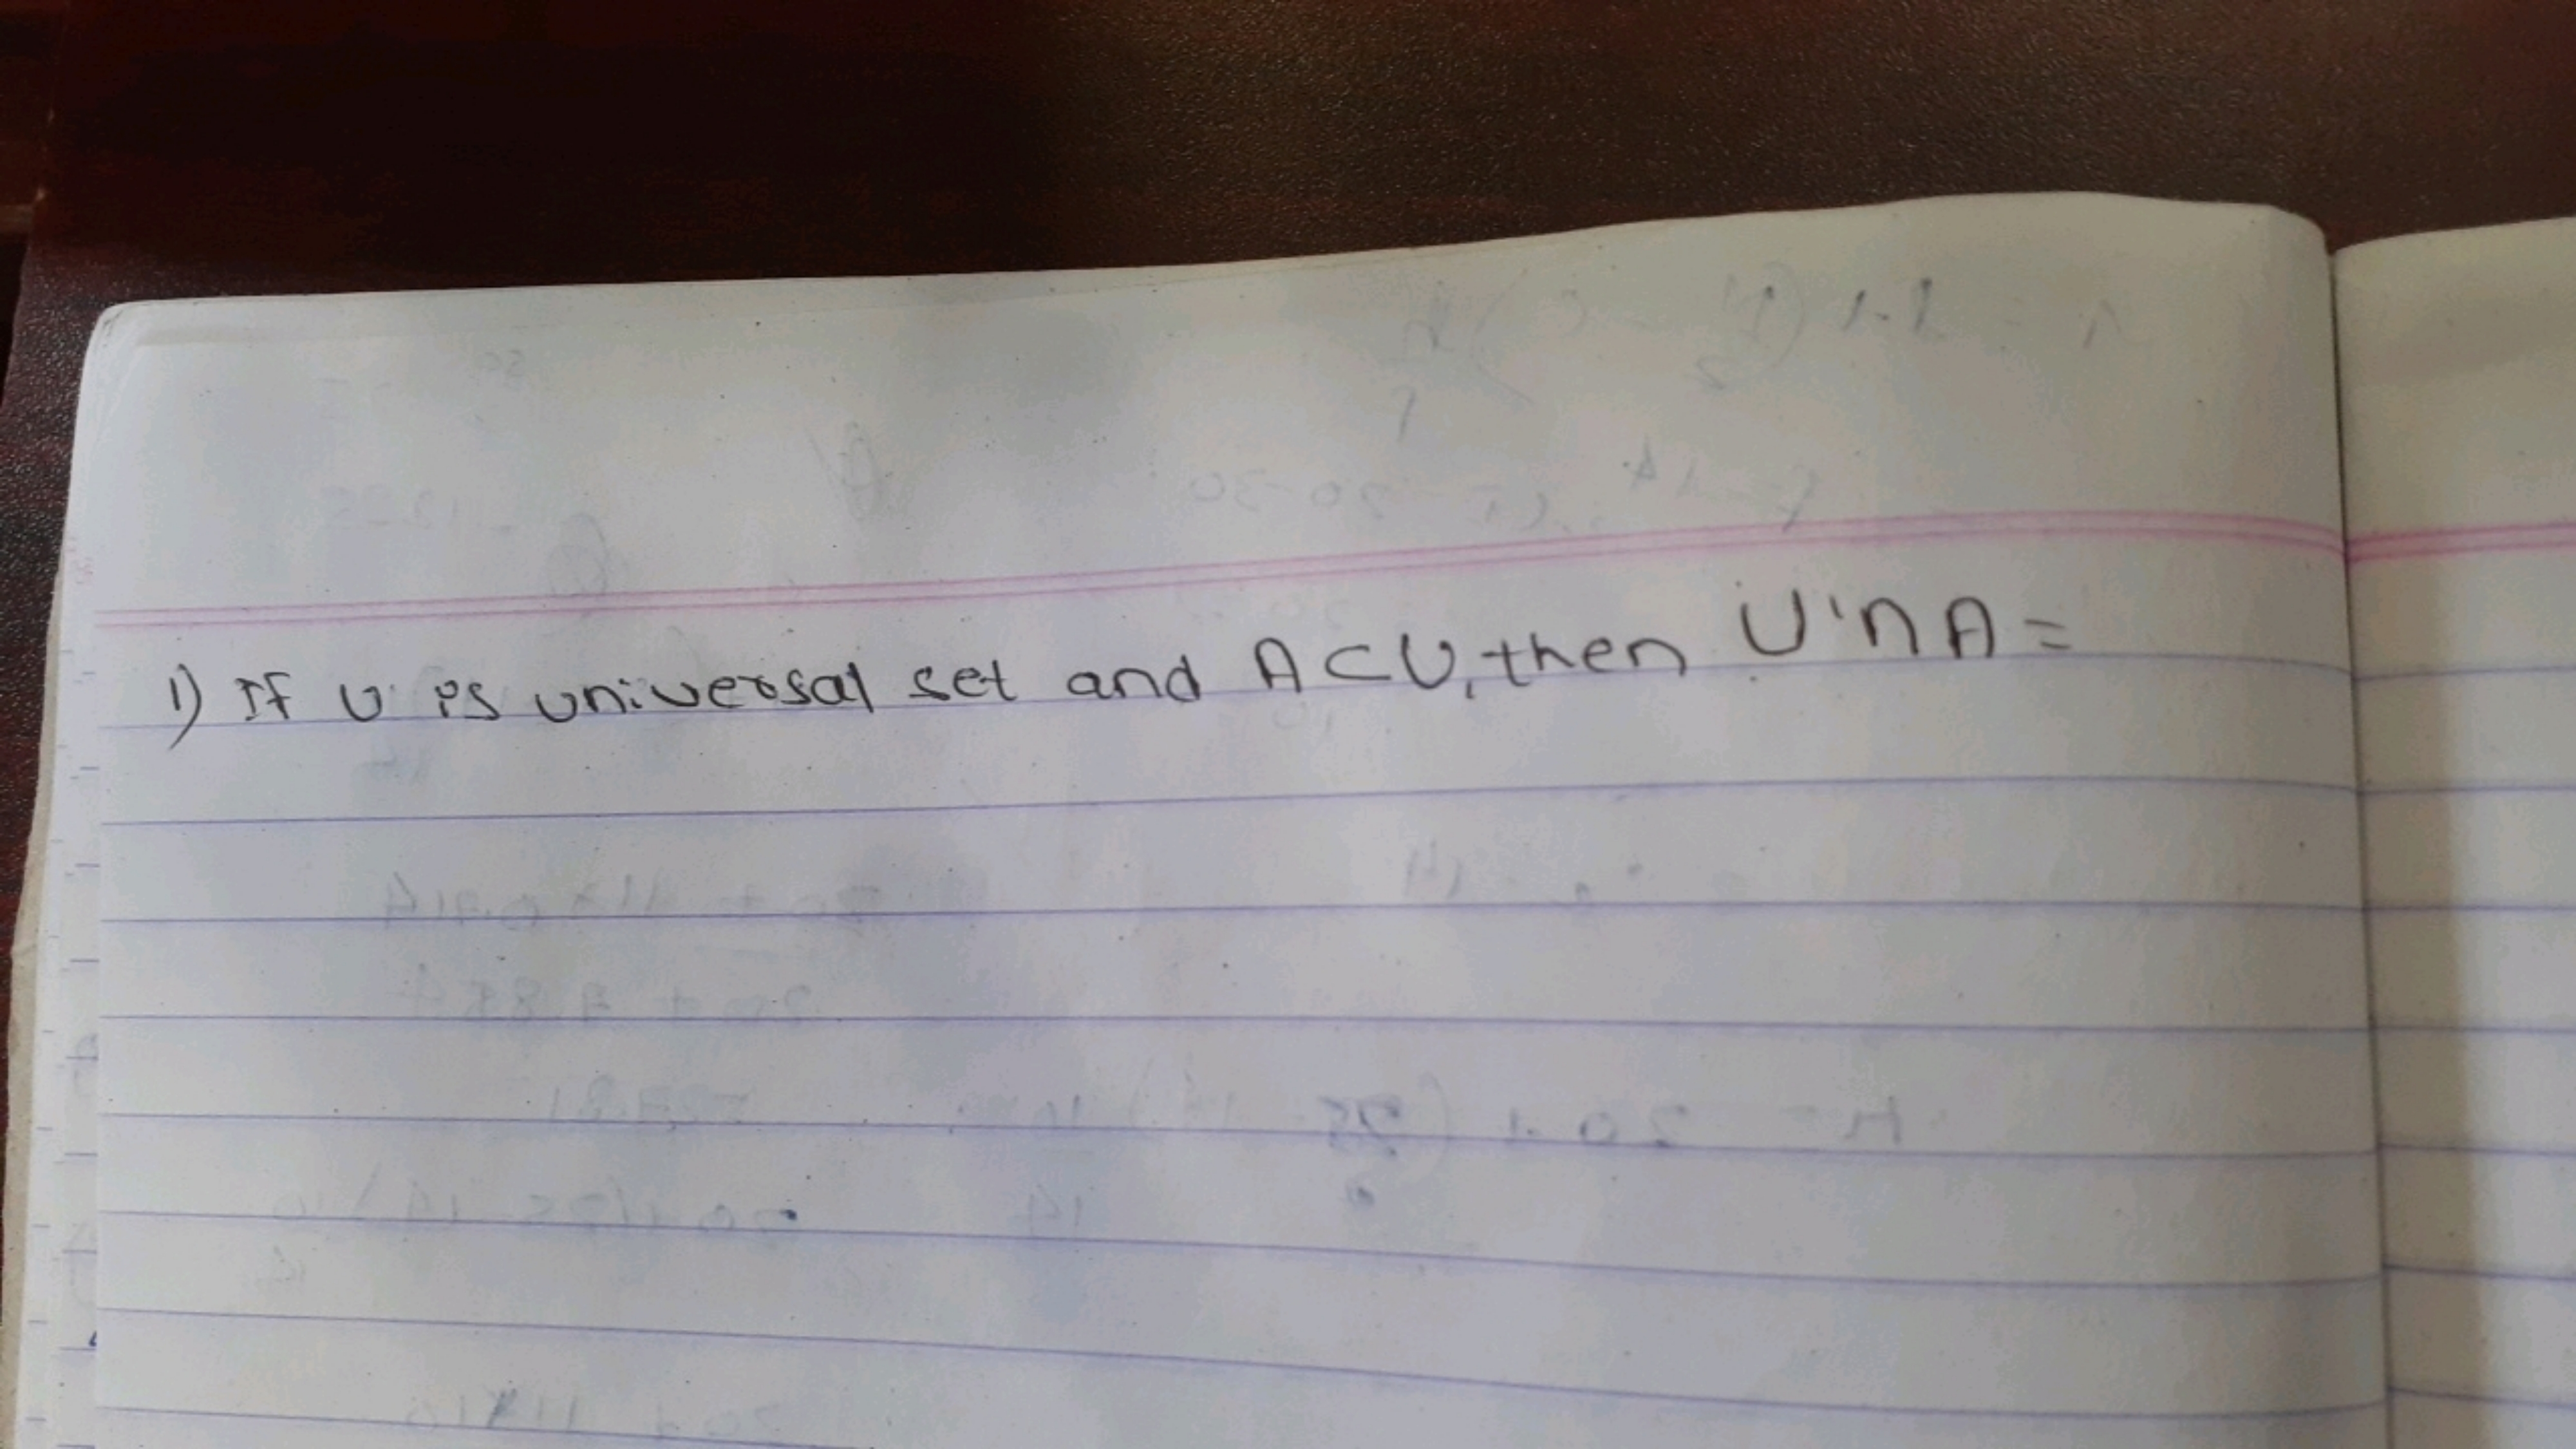 1) If U is universal set and A⊂U, then U'∩A=